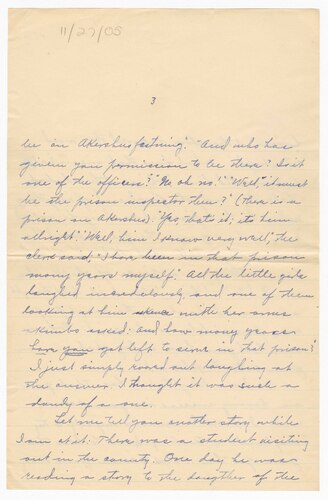 11/27/05
3
be on Akershusfastning." "And who has
given you permission to be there? Is it
one of the officers?" "No oh no!" "Well," it must
be the prison inspector then?" (There is a
prison on Akershus) "Yes, that's it; it's him
allright." "Well, him I know very well," the
clerk said "I have been in that prison
many years myself." All the little girls
laughed incredulously, and one of them
looking at him with her arms
akimbo asked: and how many years
have you yet left to serve in that prison?"
I just simply roared out laughing at
the answer. I thought it was such a
dandy of a one.
Let me tell you another story while
I am at it: There was a student visiting
out in the country. One day he was
reading a story to the daughter of the